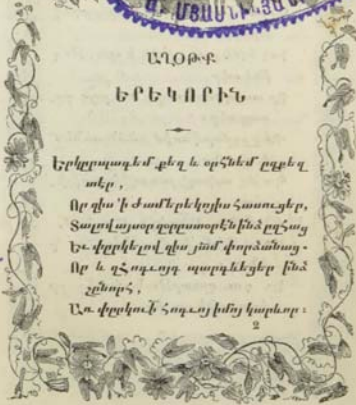 Ա. ՄՅԱՍՆԻՆՅԱՆ
ԱՂՕԹՔ
ԵՐԵԿՈՐԻՆ
Երկըրպագեմ քեզ և օրհնեմ ըզքեզ
տէր,
Որ զիս ՚ի ժամ երեկոյիս հասուցեր,
Տալով այսօր զօրըստօրէն ինձ ըզհաց
Եւ փըրկելով զիս յամ փորձանաց.
Որ և զՀոգւոյդ պարգևեցեր ինձ
շընորհ,
Առ փըրկուի հոգւոյ իմոյ կարևոր։
2